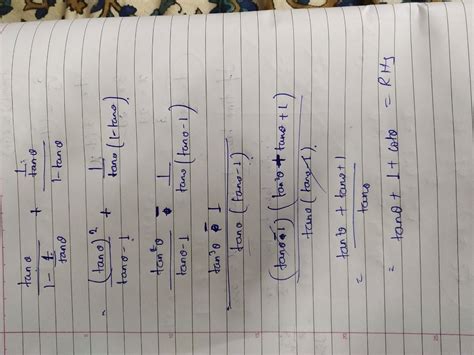 tanθ / (1 - 1/tanθ) + (1/tanθ) / (1 - tanθ)
= (tanθ)² / (tanθ - 1) + 1 / (tanθ (1 - tanθ))
tan²θ / (tanθ - 1) - 1 / (tanθ (tanθ - 1))
tan³θ - 1 / (tanθ (tanθ - 1))
(tanθ - 1) (tan²θ + tanθ + 1) / (tanθ (tanθ - 1))
= (tan²θ + tanθ + 1) / tanθ
= tanθ + 1 + cotθ = RHS